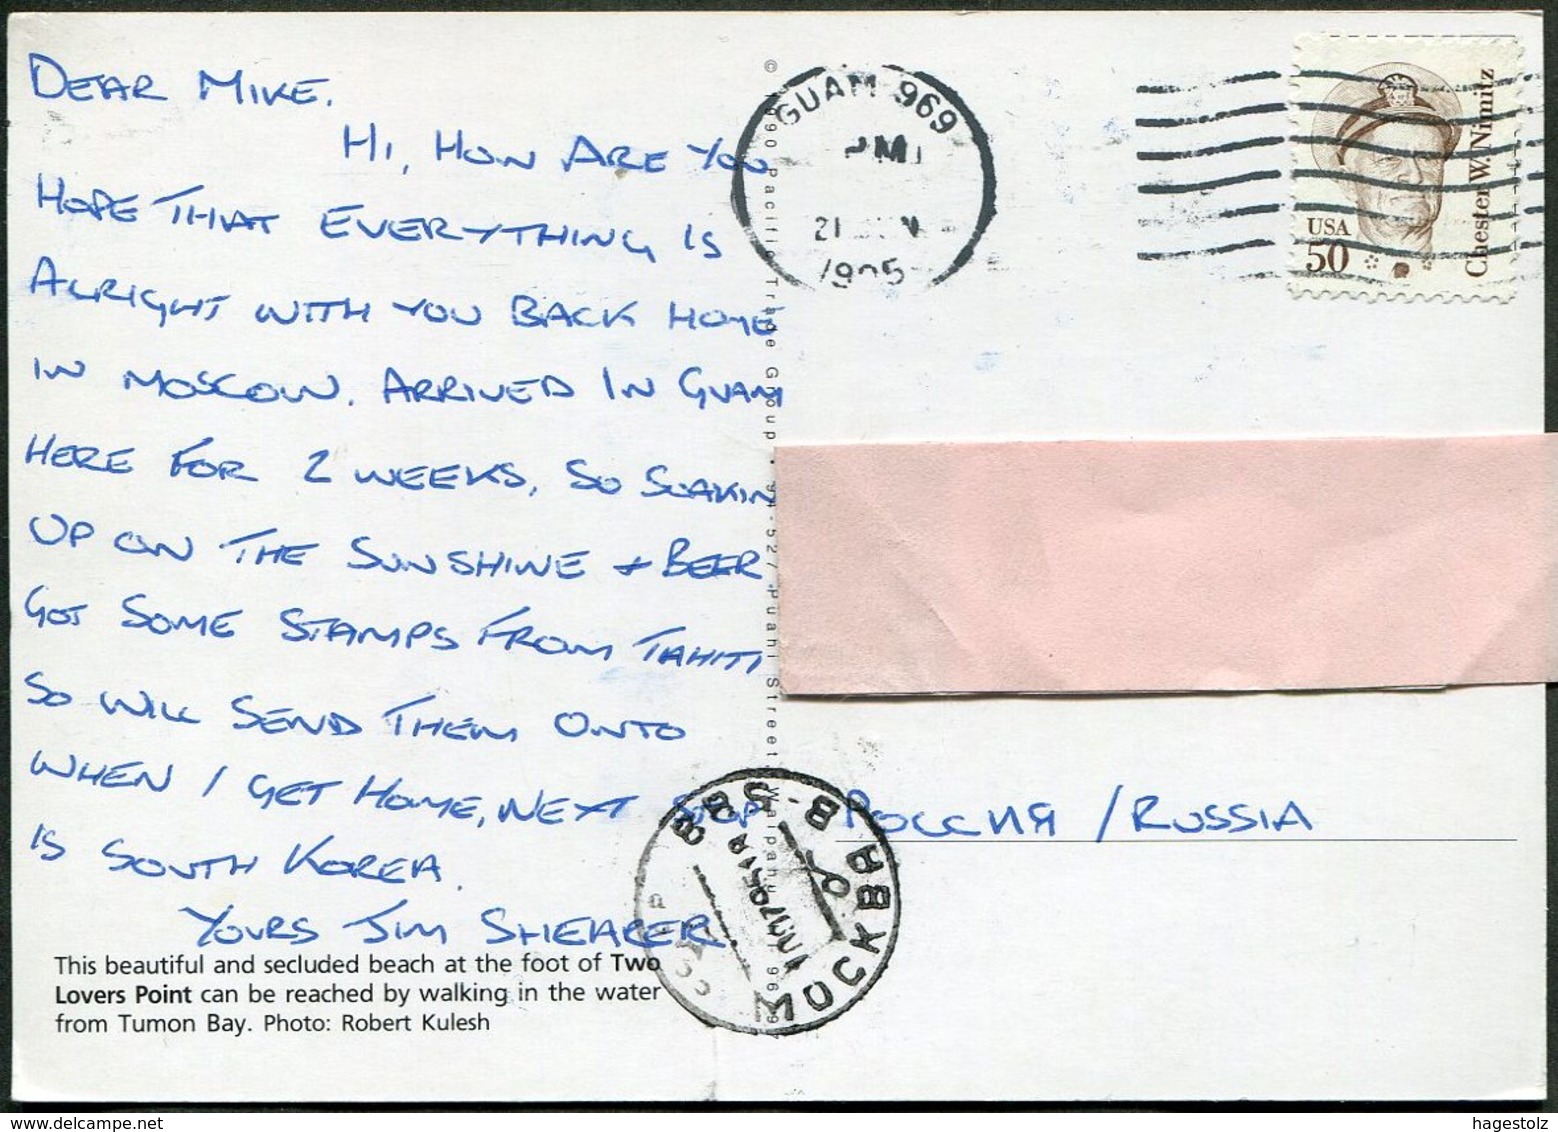 DEAR MIKE.
HI, HOW ARE YOU
HOPE THAT EVERYTHING IS
ALRIGHT WITH YOU BACK HOME
IN MOSCOW. ARRIVED IN GUAM
HERE FOR 2 WEEKS, SO SOAKIN
UP ON THE SUNSHINE + BEER
GOT SOME STAMPS FROM TAHITI
SO WILL SEND THEM ONTO
WHEN I GET HOME, NEXT STOP
IS SOUTH KOREA.
YOURS JIM SHEARER
This beautiful and secluded beach at the foot of Two
Lovers Point can be reached by walking in the water
from Tumon Bay. Photo: Robert Kulesh
Pacific Trade Group • 94-527 Puahi Street
GUAM 969
PM
21
USA
50
Chester W. Nimitz
РОССИЯ / RUSSIA
МОСКВА
hagestolz